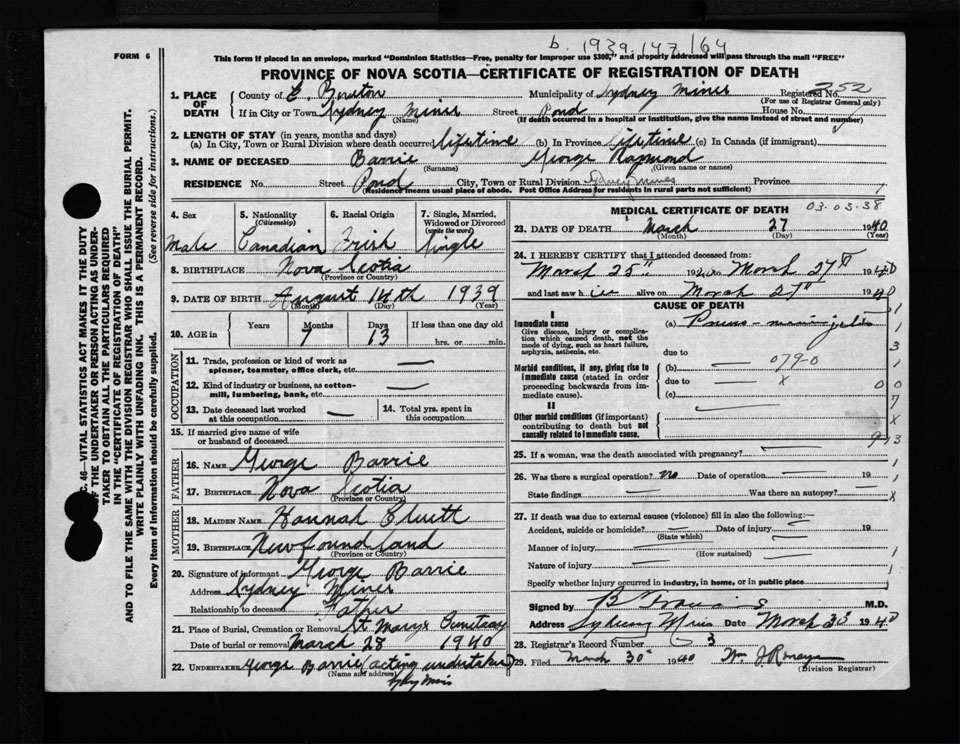 b. 1939.147/164
FORM 6
This form if placed in an envelope, marked "Dominion Statistics—Free, penalty for improper use $300," and properly addressed will pass through the mail "FREE"
PROVINCE OF NOVA SCOTIA—CERTIFICATE OF REGISTRATION OF DEATH
C. 46—VITAL STATISTICS ACT MAKES IT THE DUTY
OF THE UNDERTAKER OR PERSON ACTING AS UNDER-
TAKER TO OBTAIN ALL THE PARTICULARS REQUIRED
IN THE "CERTIFICATE OF REGISTRATION OF DEATH"
AND TO FILE THE SAME WITH THE DIVISION REGISTRAR WHO SHALL ISSUE THE BURIAL PERMIT.
WRITE PLAINLY WITH UNFADING INK, THIS IS A PERMANENT RECORD.
Every item of information should be carefully supplied. (See reverse side for instructions.)
1. PLACE OF DEATH County of Municipality of Sydney Mines Registered No. 252
(For use of Registrar General only)
If in City or Town Sydney Mines Street Pond House No.
(Name) (If death occurred in a hospital or institution, give the name instead of street and number)
2. LENGTH OF STAY (in years, months and days)
(a) In City, Town or Rural Division where death occurred lifetime (b) In Province lifetime (c) In Canada (if immigrant)
3. NAME OF DECEASED Barrie George Raymond
(Surname) (Given name or names)
RESIDENCE No. Street Pond City, Town or Rural Division Sydney Mines Province
(Residence means usual place of abode. Post Office Address for residents in rural parts not sufficient)
4. Sex Male
5. Nationality (Citizenship) Canadian
6. Racial Origin Irish
7. Single, Married, Widowed or Divorced (write the word) Single
8. BIRTHPLACE Nova Scotia
(Province or Country)
9. DATE OF BIRTH August 14th 1939
(Month) (Day) (Year)
10. AGE in Years Months 7 Days 13 If less than one day old hrs. or min.
OCCUPATION
11. Trade, profession or kind of work as spinner, teamster, office clerk, etc. —
12. Kind of industry or business, as cotton-mill, lumbering, bank, etc. —
13. Date deceased last worked at this occupation —
14. Total yrs. spent in this occupation.
15. If married give name of wife or husband of deceased
FATHER
16. NAME George Barrie
17. BIRTHPLACE Nova Scotia
(Province or Country)
MOTHER
18. MAIDEN NAME Hannah
19. BIRTHPLACE Newfoundland
(Province or Country)
20. Signature of informant George Barrie
Address Sydney Mines
Relationship to deceased Father
21. Place of Burial, Cremation or Removal St Marys Cemetary
Date of burial or removal March 28 1940
22. UNDERTAKER George Barrie (acting undertaker)
(Name and address)
MEDICAL CERTIFICATE OF DEATH 03-03-38
23. DATE OF DEATH March 27 1940
(Month) (Day) (Year)
24. I HEREBY CERTIFY that I attended deceased from:
March 25th 1940 to March 27th 1940
and last saw h alive on March 27th 1940
CAUSE OF DEATH
I
Immediate cause (a)
Give disease, injury or complication which caused death, not the mode of dying, such as heart failure, asphyxia, asthenia, etc.
due to
Morbid conditions, if any, giving rise to immediate cause (stated in order proceeding backwards from immediate cause). (b) 079-0
due to x
(c)
II
Other morbid conditions (if important) contributing to death but not causally related to immediate cause.
25. If a woman, was the death associated with pregnancy? —
26. Was there a surgical operation? no Date of operation 19
State findings — Was there an autopsy? —
27. If death was due to external causes (violence) fill in also the following:—
Accident, suicide or homicide? — Date of injury — 19
(State which)
Manner of injury —
(How sustained)
Nature of injury —
Specify whether injury occurred in industry, in home, or in public place
Signed by M.D.
Address Sydney Mines Date March 30 1940
28. Registrar's Record Number 3
29. Filed March 30 1940 Wm J.
(Division Registrar)